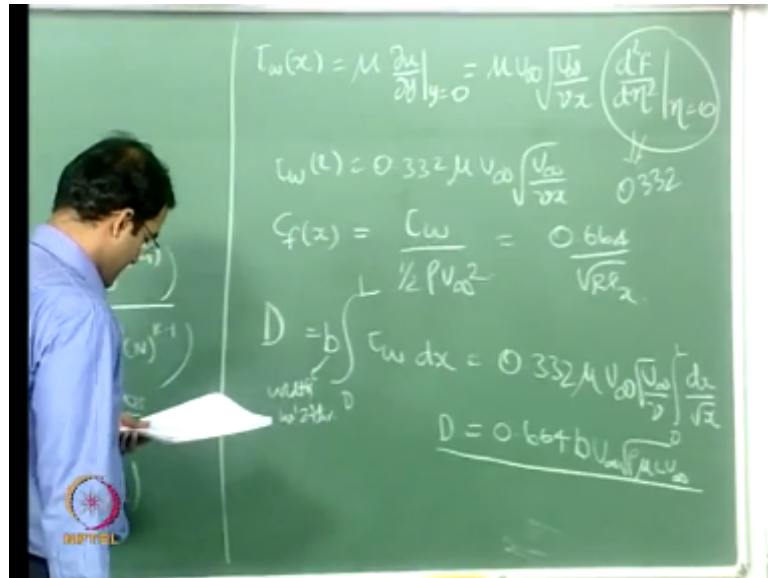 τw(x) = μ ∂u/∂y|y=0 = μ U∞ √(U∞/νx) d²F/dη²|η=0
τw(x) = 0.332 μ U∞ √(U∞/νx) 0.332
Cf(x) = τw / ½ ρU∞² = 0.664 / √Rex
D = b ∫0^L τw dx = 0.332 μ U∞ √(U∞/ν) ∫0^L dx/√x
width
in 'z' dir.
D = 0.664 b U∞ √(ρμLU∞)
(N)^K-1
NPTEL